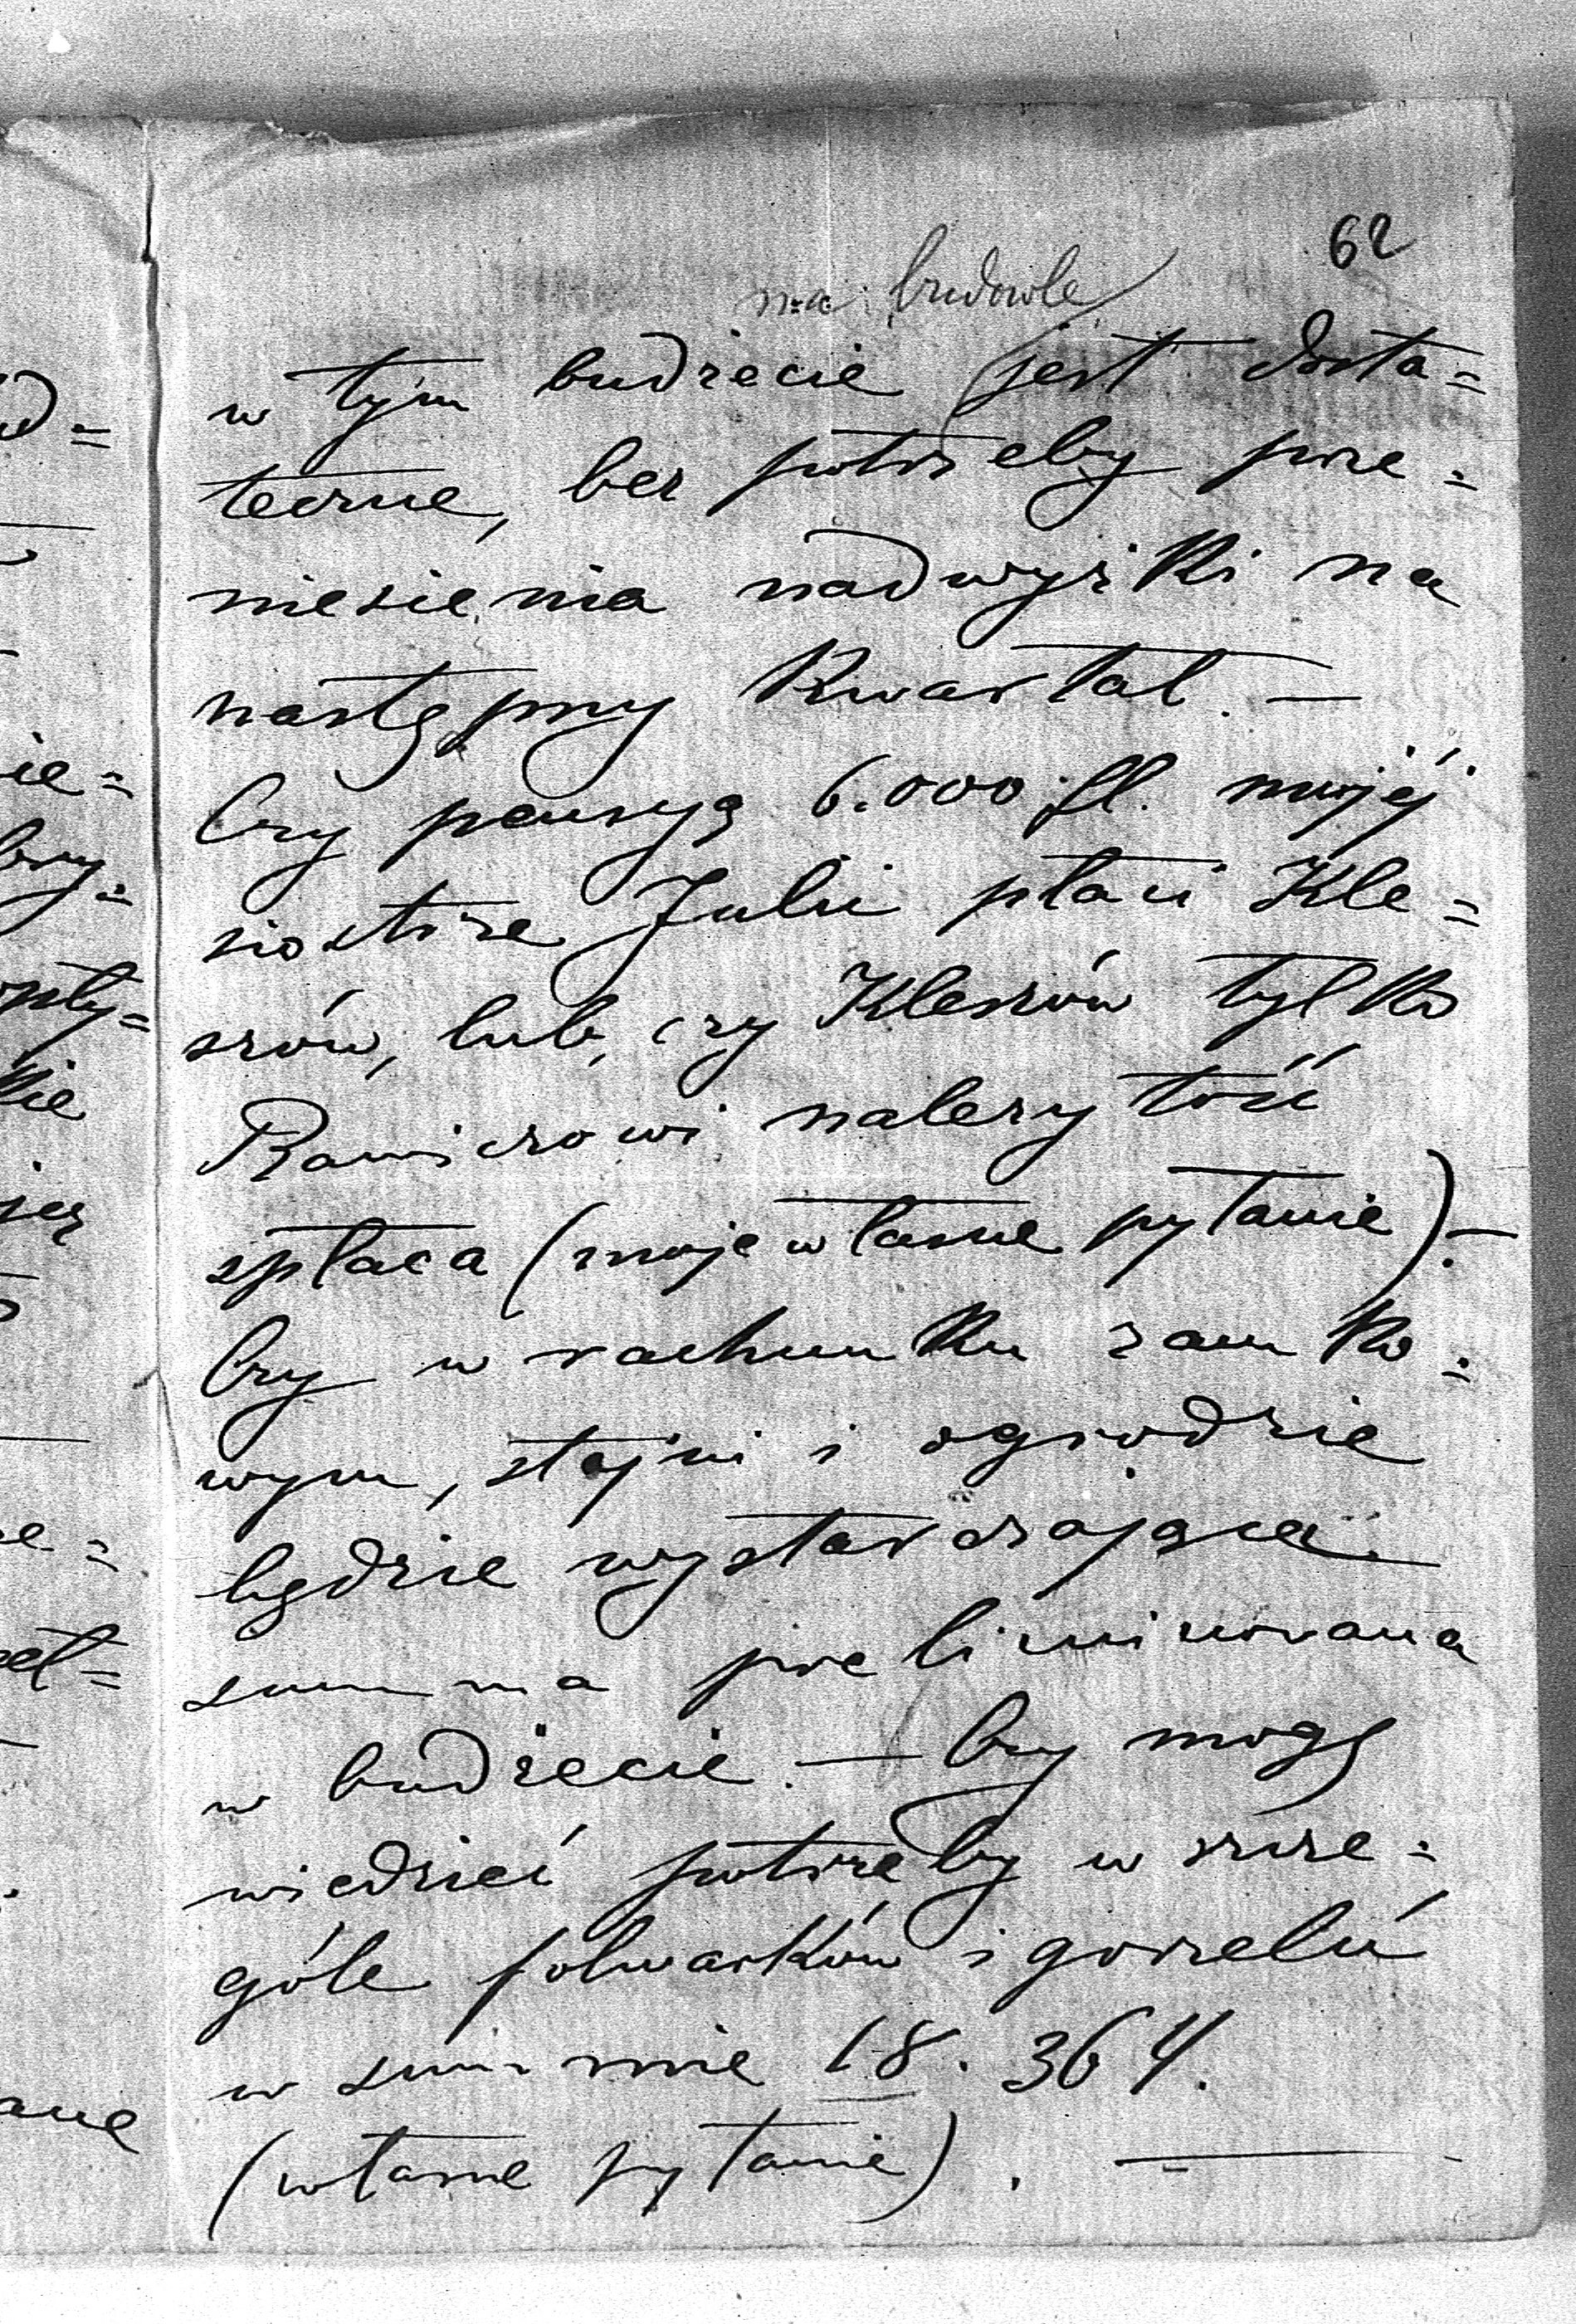 62
na budowle
w tym budżecie jest dosta=
teczne, bez potrzeby prze=
niesienia nadwyżki na
następny Kwartał. —
Czy pensyą 6.000 fl. mojéj
siostrze Julii płaci Kle=
szców, lub, czy Kleszców tylko
należytość
spłaca (moje własne pytanie). —
Czy w rachunku zamko=
wym, stajni i ogrodzie
będzie wystarczająca
summa preliminowana
w budżecie. — Czy mogę
wiedzieć potrzeby w szcze=
góle folwarków i gorzelń
w summie 18.364.
(własne pytanie). —